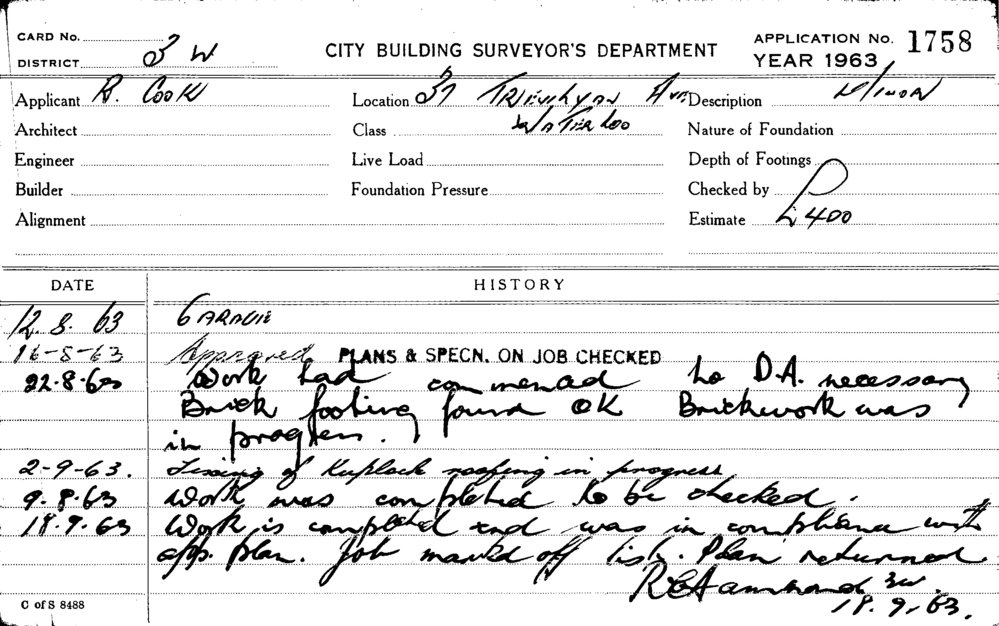 CARD No.
DISTRICT 3 W
CITY BUILDING SURVEYOR'S DEPARTMENT
APPLICATION No. 1758
YEAR 1963
Applicant R. COOK
Location 37 TREVILYAN AVE
Description MINOR
Architect
Class WATERLOO
Nature of Foundation
Engineer
Live Load
Depth of Footings
Builder
Foundation Pressure
Checked by
Alignment
Estimate £400
DATE HISTORY
12.8.63 GARAGE
16-8-63 Approved PLANS & SPECN. ON JOB CHECKED
22.8.63 Work had commenced No D.A. necessary
Brick footing found OK Brickwork was
in progress.
2-9-63. Fixing of Kuplock roofing in progress
9.8.63 Work was completed to be checked.
18.9.63 Work is completed and was in compliance with
app. plan. Job marked off list. Plan returned
R C Hammond 3W.
C of S 8488
18.9.63.